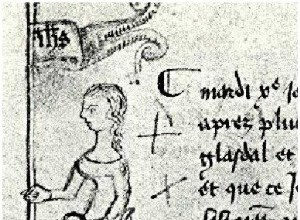 ihs
mardi xe jo
aprez plu
glasdal et
et que ce J